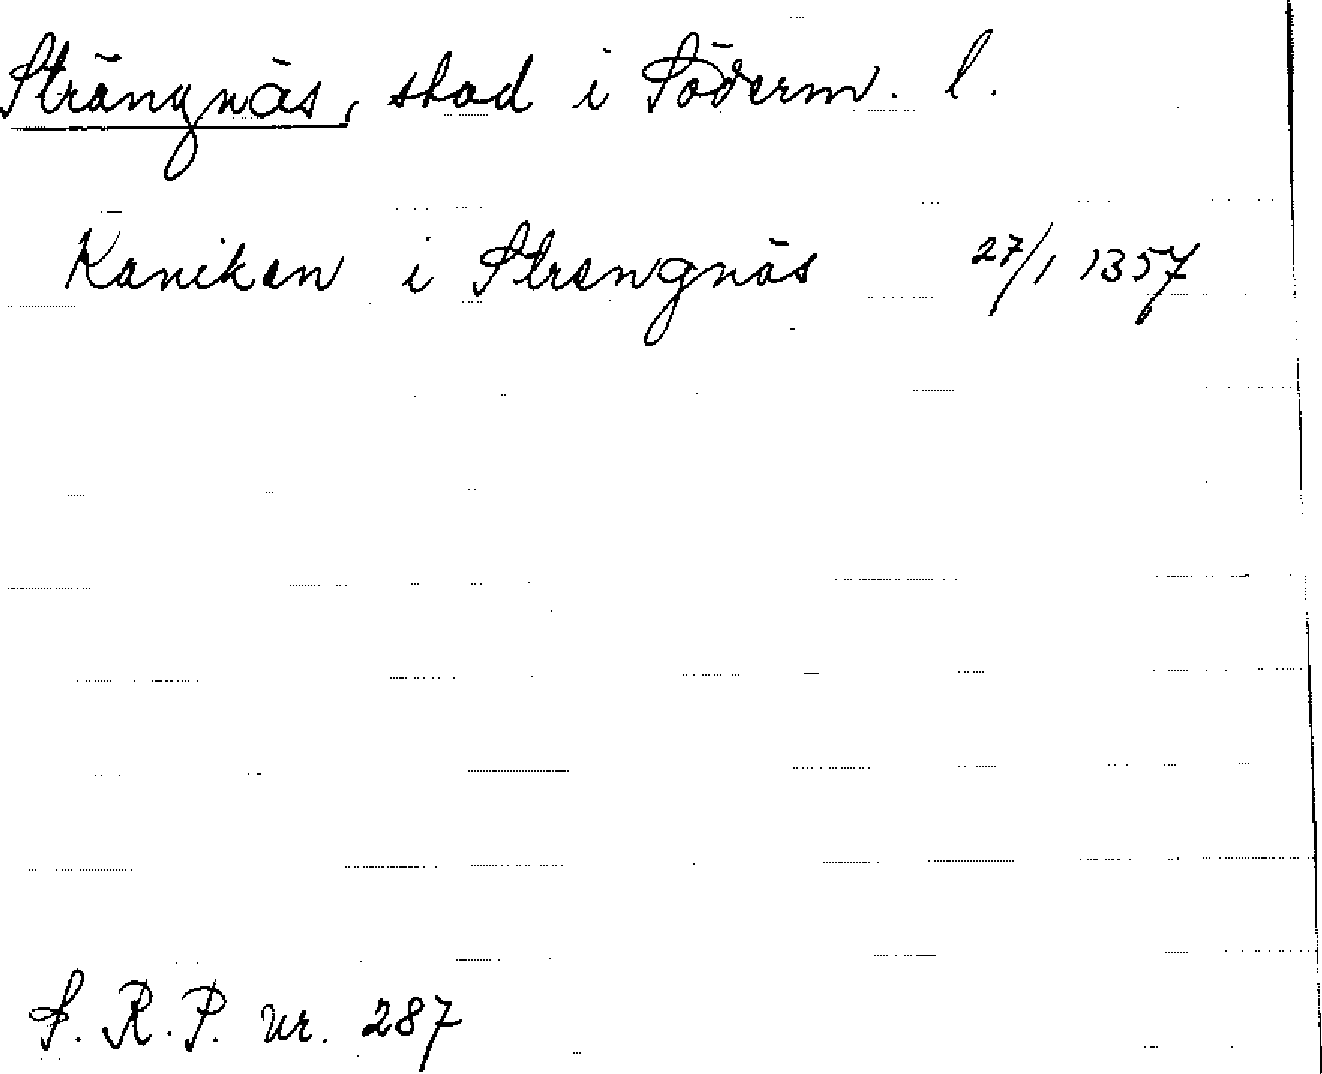 Strängnäs, stad i Söderm. l.
Kaniken i Strengnäs 27/1 1357
S. R. P. nr. 287